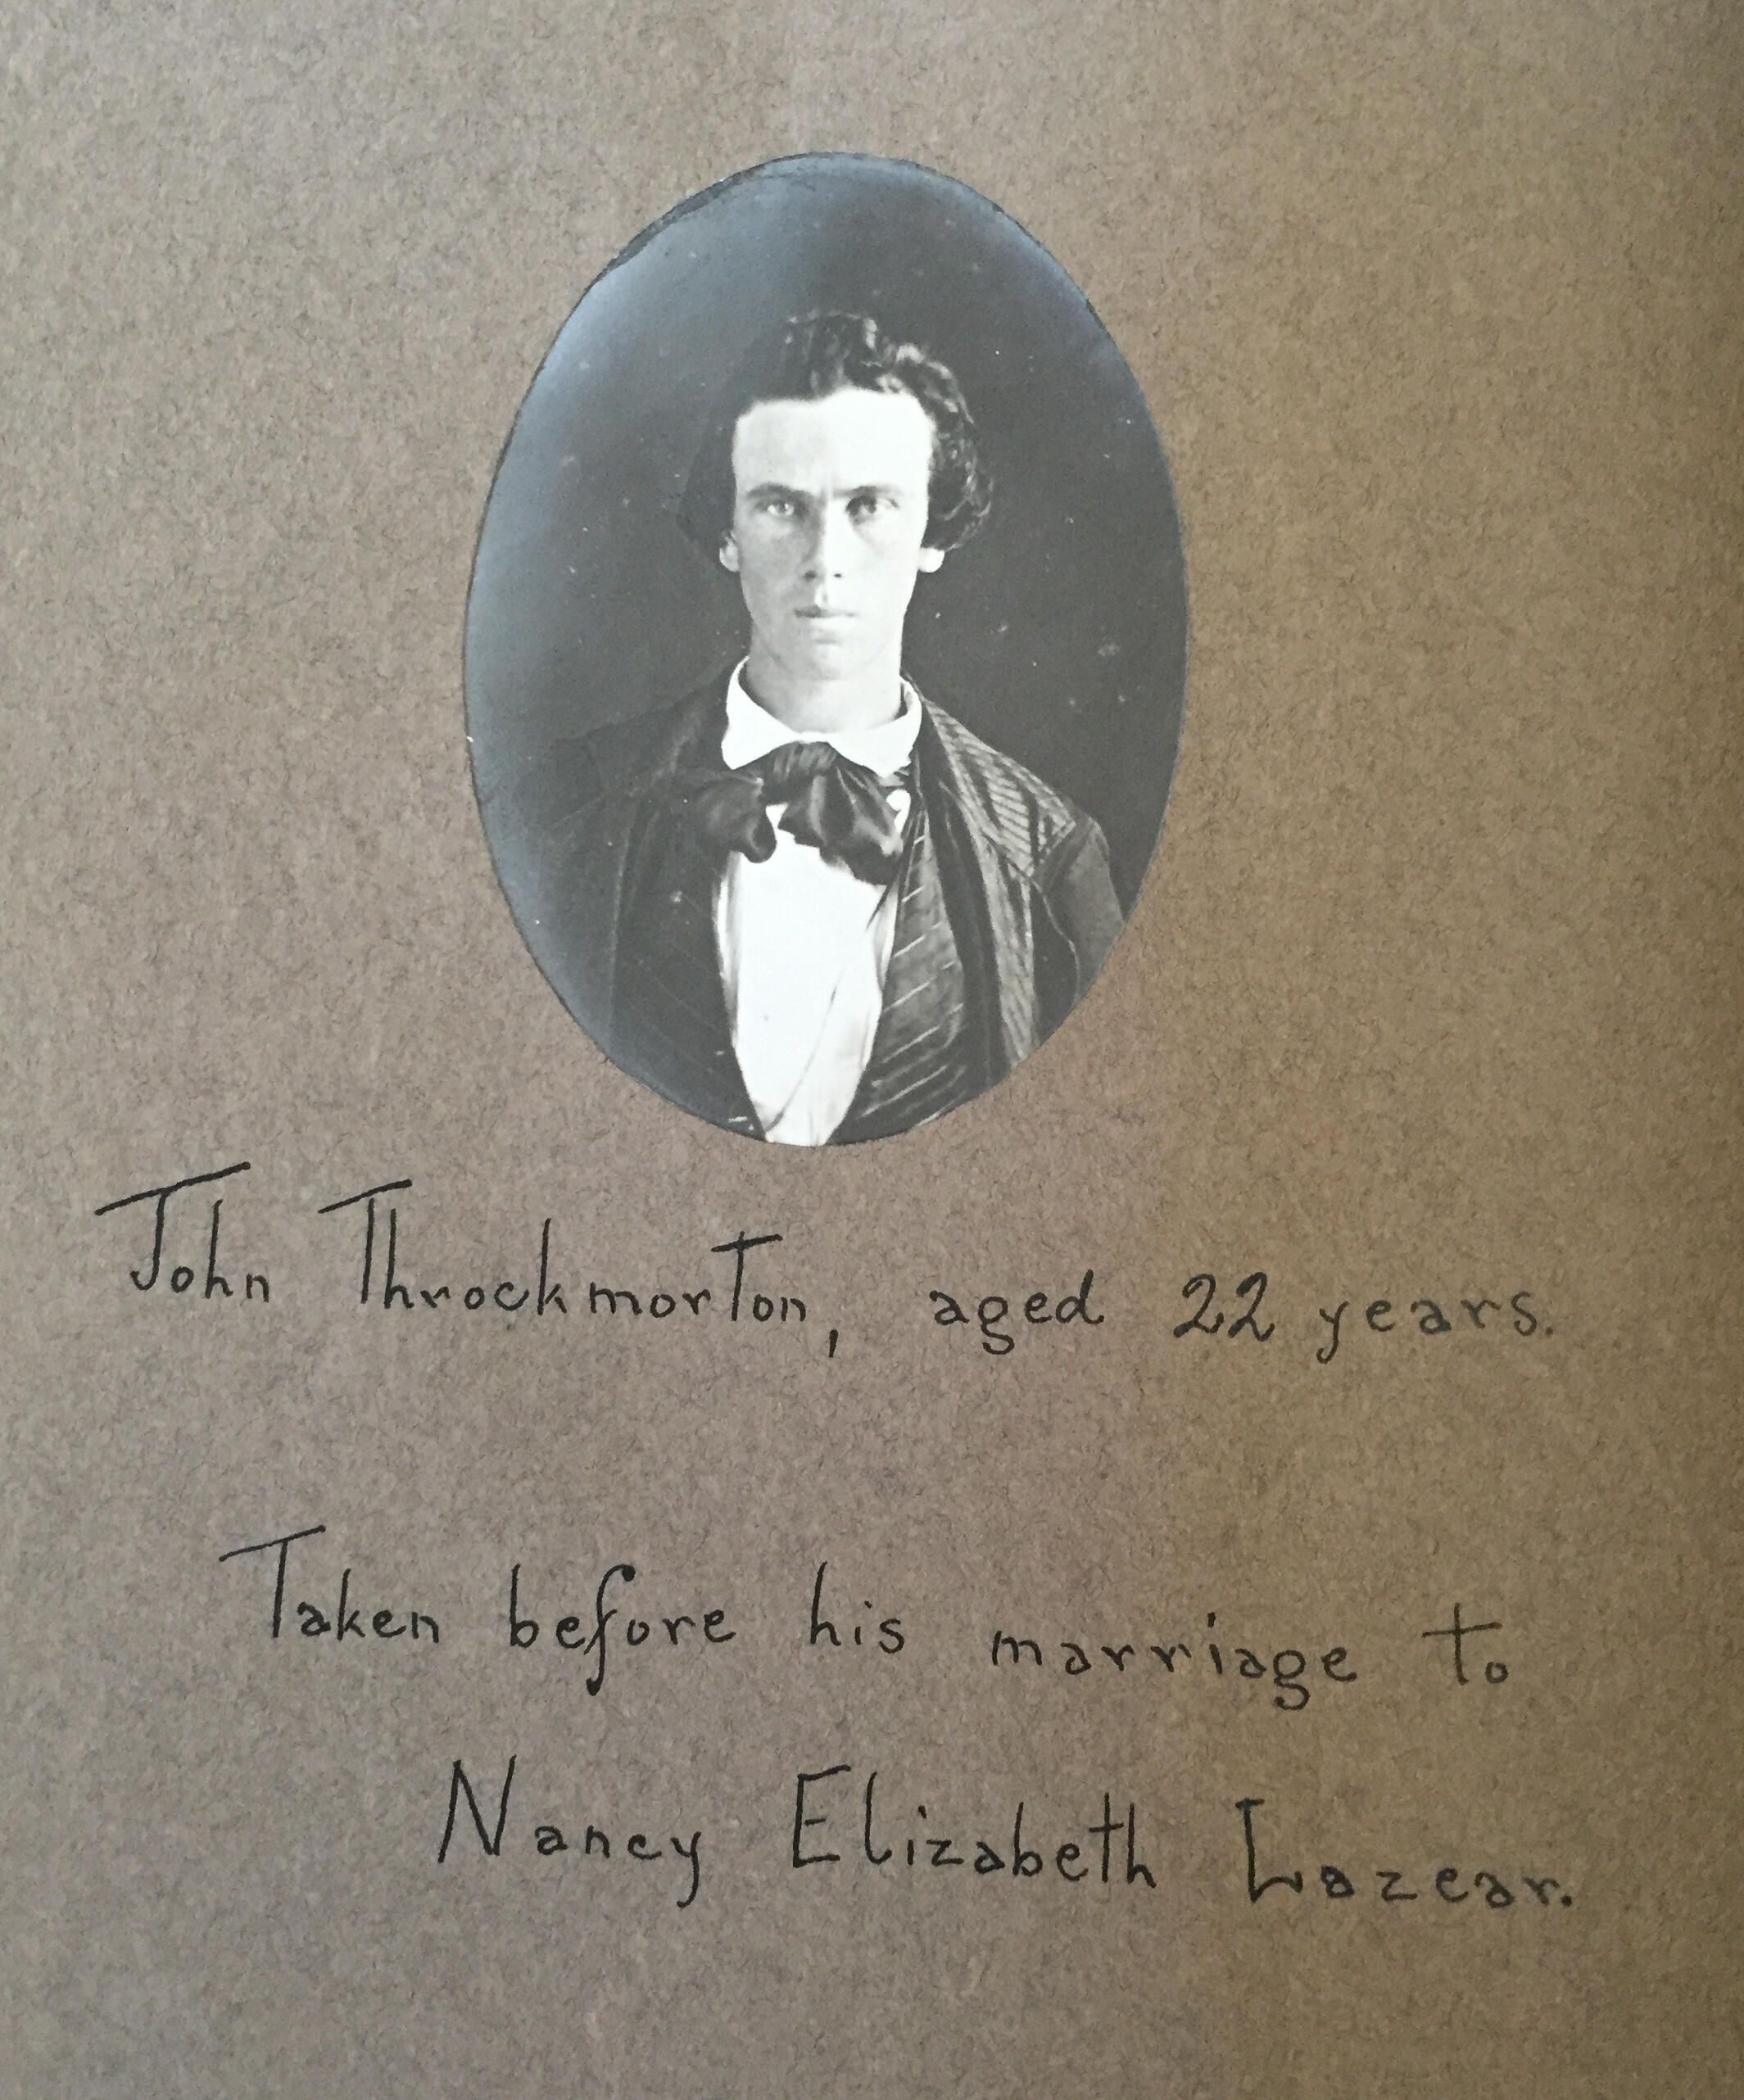 John Throckmorton, aged 22 years.
Taken before his marriage to
Nancy Elizabeth Lazear.